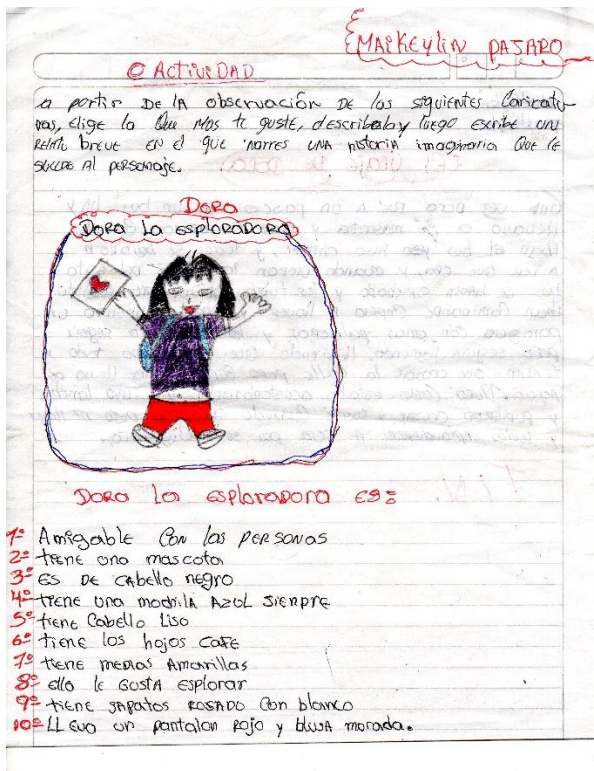 MAIKEYLIN PAJARO
ACTIVIDAD
a partir DE lA observación DE las siguientes Caricatu
ras, elige la Que Mas te guste, describala y luego escribe un
Relato breve EN el que narres UNA historia imaginaria Que le
sucede Al personaje.
DORA
DORA La ESPloRADORA
DORA La esploradora es:
1º Amigable Con las PERSONAS
2º tiene una mascota
3º ES DE cabello negro
4º tiene una modrila AZUL SIENPRE
5º tiene Cabello Liso
6º tiene los hojos CAFE
7º tiene medias Amarillas
8º ella le GUSTA Esplorar
9º tiene zapatos ROSADO Con blanco
10º LLEVA un pantalon Rojo y blusa morada.